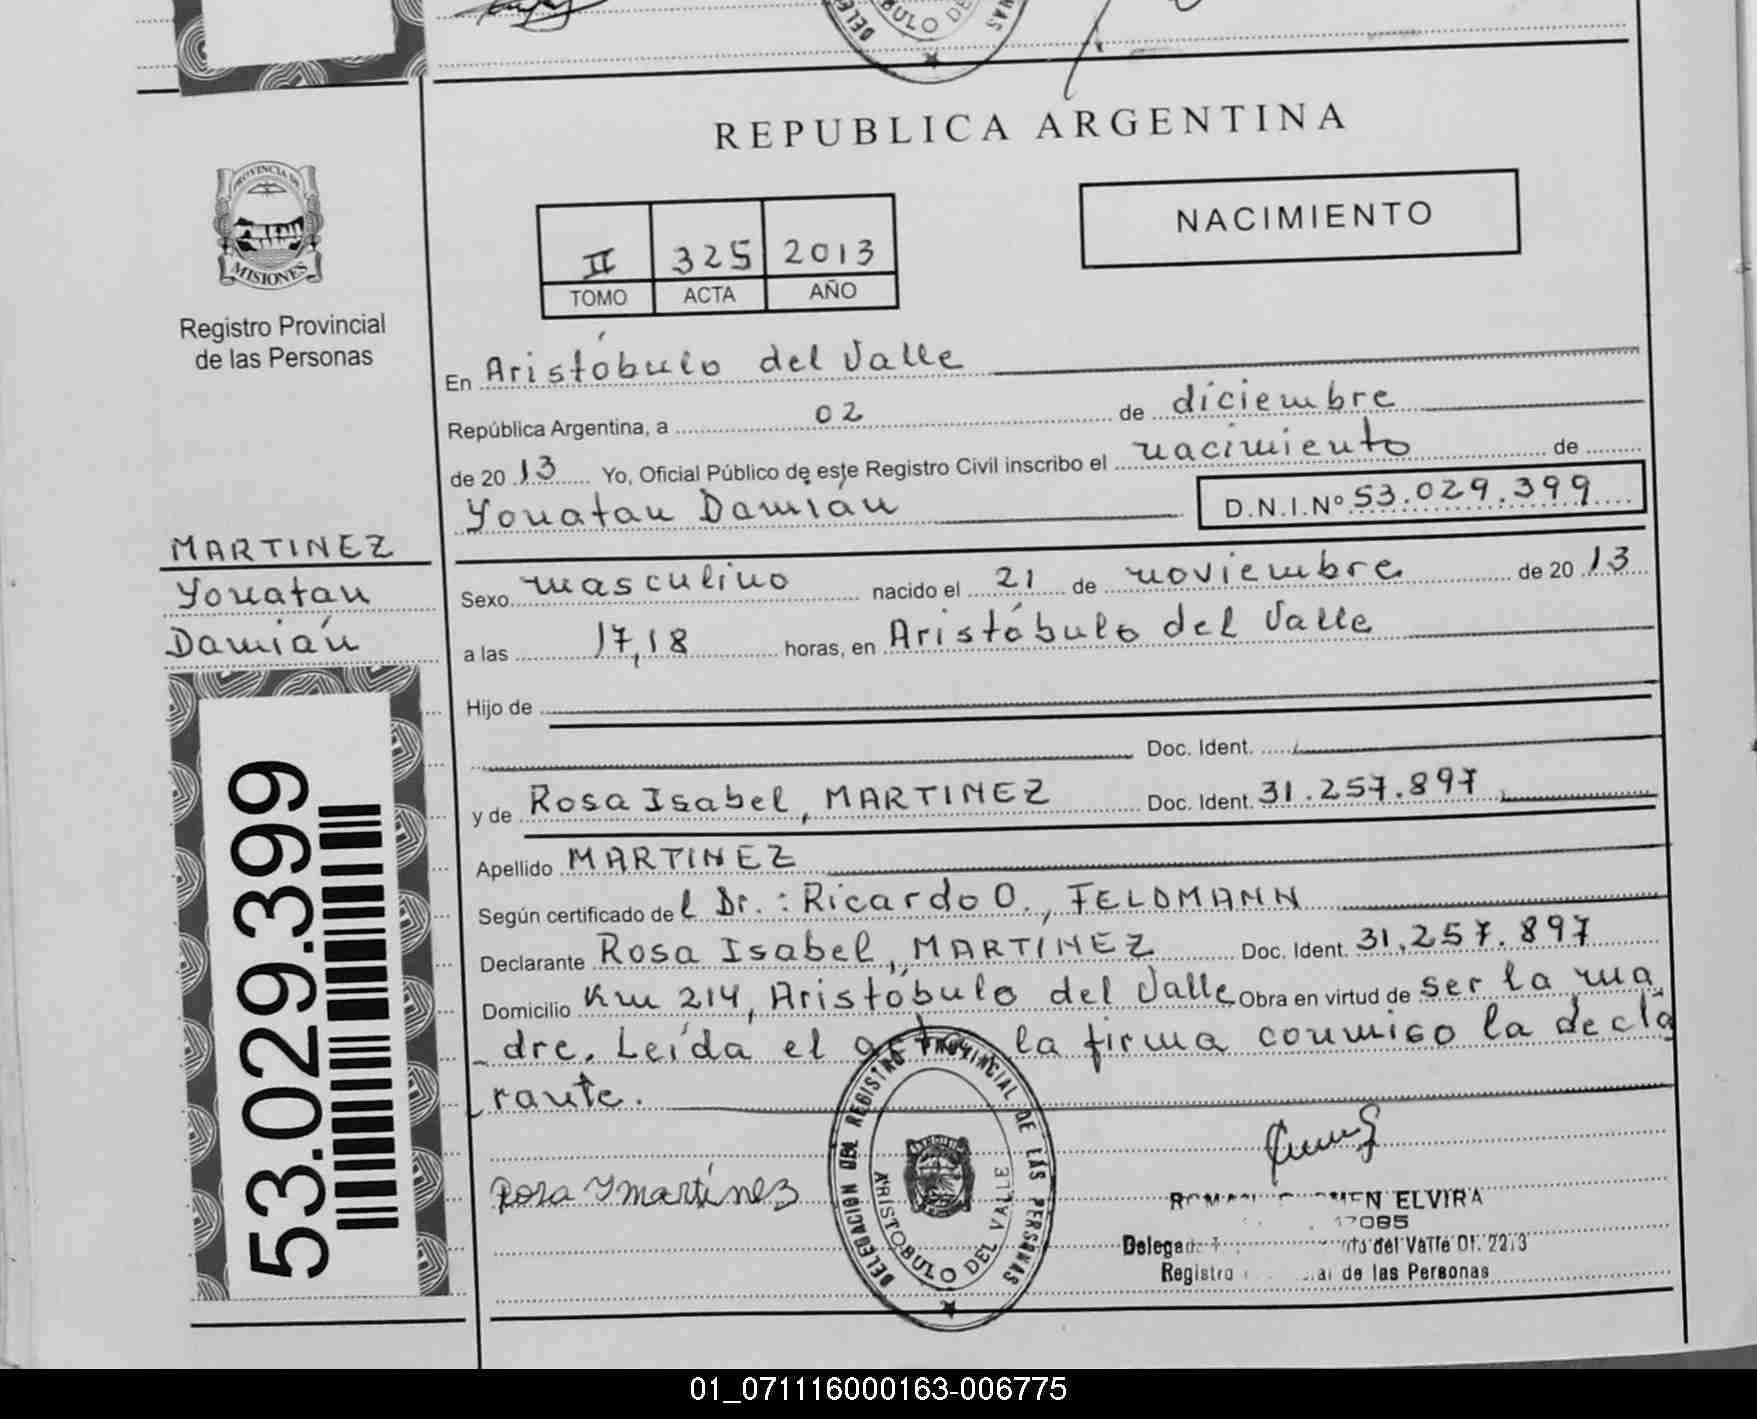 REPUBLICA ARGENTINA
PROVINCIA DE
MISIONES
Registro Provincial
de las Personas
NACIMIENTO
II 325 2013
TOMO ACTA AÑO
En Aristóbulo del Valle
República Argentina, a 02 de diciembre
de 2013 Yo, Oficial Público de este Registro Civil inscribo el nacimiento de
Yonatan Damián D.N.I.Nº 53.029.399
MARTINEZ
Yonatan
Damián
Sexo masculino nacido el 21 de noviembre de 2013
a las 17,18 horas, en Aristóbulo del Valle
Hijo de
Doc. Ident.
y de Rosa Isabel, MARTINEZ Doc. Ident. 31.257.897
Apellido MARTINEZ
Según certificado del Dr.: Ricardo O., FELDMANN
Declarante Rosa Isabel, MARTÍNEZ Doc. Ident. 31.257.897
Domicilio Km 214, Aristóbulo del Valle Obra en virtud de ser la ma
dre. Leída el acta, la firma conmigo la decla
rante.
53.029.399
Rosa I martínez
DELEGACION DEL REGISTRO PROVINCIAL DE LAS PERSONAS
ARISTOBULO DEL VALLE
ELVIRA
del Valle Of. 2213
Registro de las Personas
01_071116000163-006775